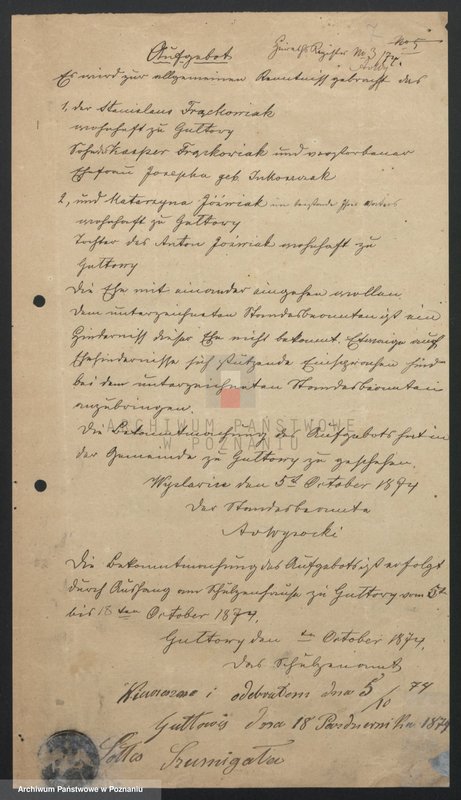 No 5
Aufgebot Heiraths Register No 3/74.
Es wird zur allgemeinen Kenntniß gebracht das
1, der Stanislaus Frąckowiak
wohnhaft zu Gultowy
Sohn Kasper Frąckowiak und verstorbener
Ehefrau Josepha geb
2, und Katarzyna Jóżwiak im
wohnhaft zu Gultowy
Tochter des Anton Jóżwiak wohnhaft zu
Gultowy
Die Ehe mit einander eingehen wollen.
Dem unterzeichneten Standesbeamten ist ein
Hinderniß dieser Ehe nicht bekannt. Etwaige auf
Ehehindernisse sich stützende Einsprachen sind
bei dem unterzeichneten Standesbeamten
anzubringen.
ARCHIWUM PAŃSTWOWE
W POZNANIU
Die Bekanntmachung des Aufgebots hat in
der Gemeinde zu Gultowy zu geschehen.
den 5t October 1874
Der Standesbeamte
Die Bekanntmachung des Aufgebots ist erfolgt
durch Aushang am Schulzenhause zu Gultowy vom 5t
bis 18 ten October 1874.
Gultowy den ten October 1874.
Das Schulzenamt
i odebrałem dnia 5/10 74
Guttowy dnia 18 Pazdziernika 1874
Sołtis Szumigała
Archiwum Państwowe w Poznaniu